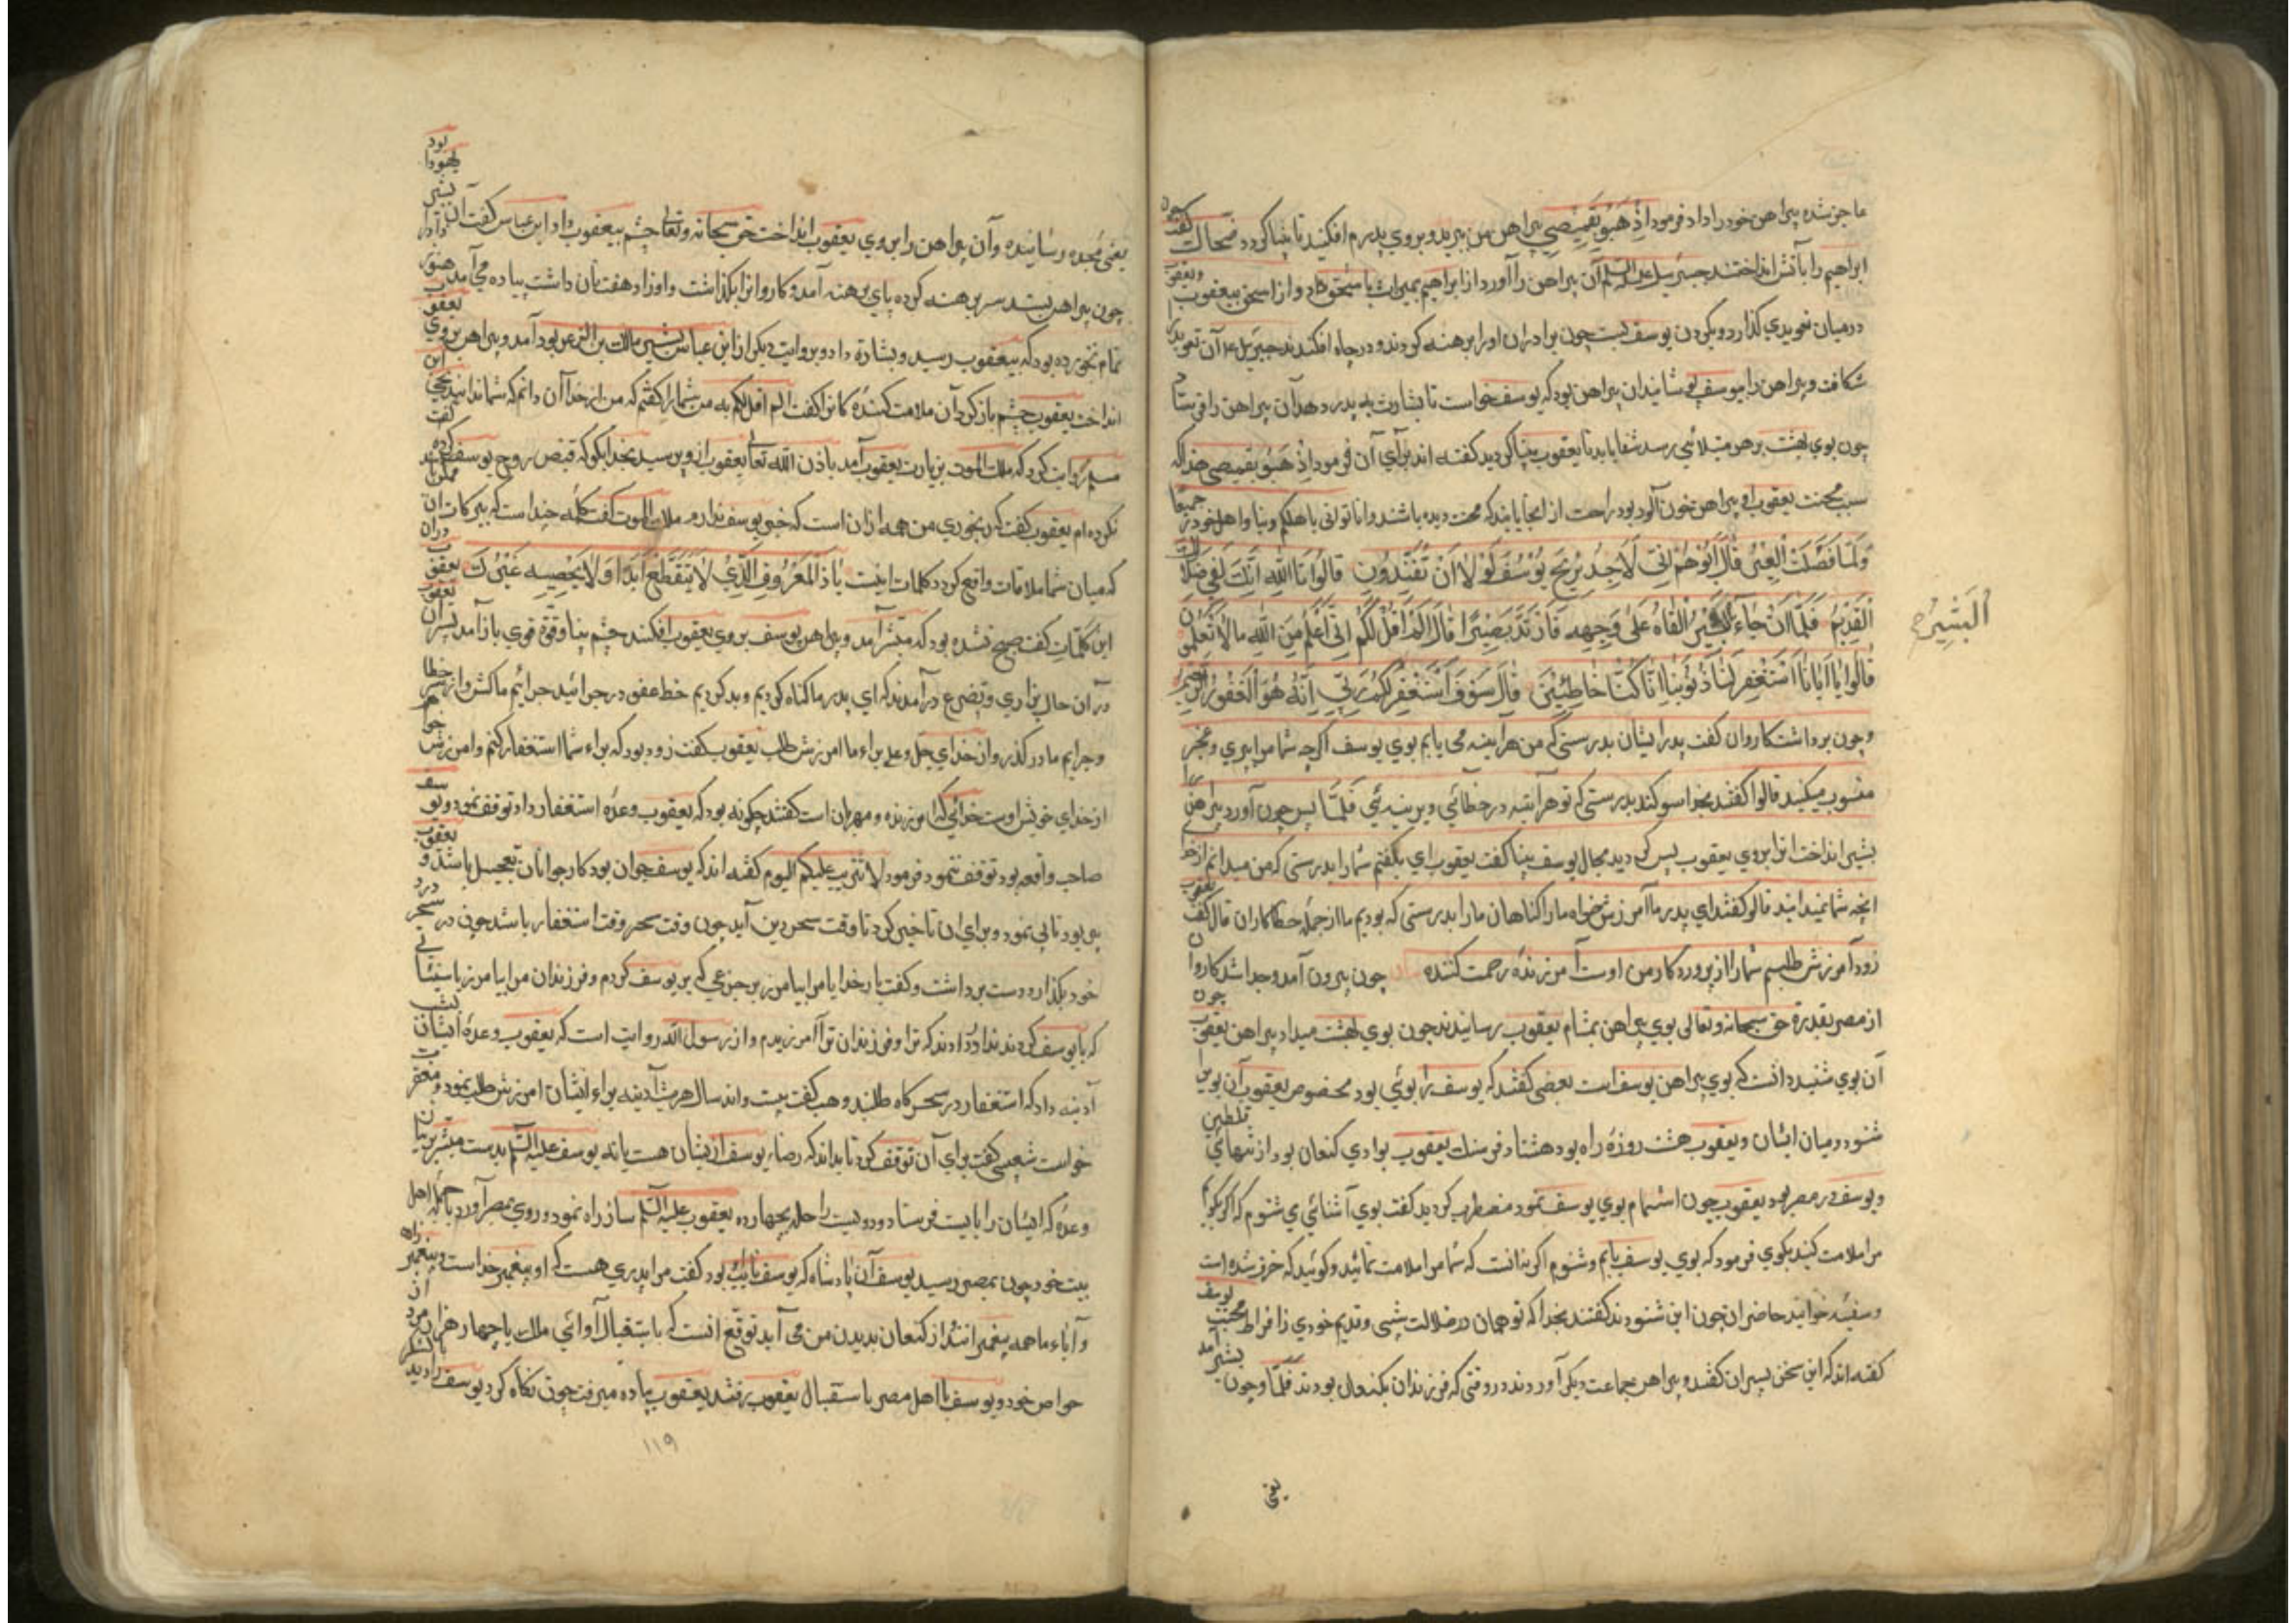 عاجز شده پیراهن خود را داد فرمود اِذْهَبُوا بِقَمِيصِي پیراهن من ببرید و بروی پدرم افکنید تا بینا کردد ضحاک گفت چون
ابراهیم را بآتش انداختند جبرئیل علیه السلم آن پیراهن را آورد از ابراهیم بمیراث باسحق داد و از اسحق بیعقوب و یعقوب
درمیان تعویذی کذارد و بکردن یوسف بست چون برادران او را برهنه کردند و در چاه افکندند جبرئیل آن تعویذ
شکافت و پیراهن را بیوسف پوشانید آن پیراهن بود که یوسف خواست تا بشارت به پدر دهد آن پیراهن را فرستاد
چون بوی بهشت بر هر مبتلائی رسد شفا یابد تا یعقوب بینا کردید کفته اند برای آن فرمود اذهبوا بقمیصی هذا که
سبب محنت یعقوب پیراهن خون آلود بود راحت از انجا یابند که محنت دیده باشند واتونی باهلکم و بیا واهل خود را جمیعا
وَلَمَّا فَصَلَتِ الْعِيرُ قَالَ أَبُوهُمْ إِنِّي لَأَجِدُ رِيحَ يُوسُفَ لَوْلَا أَنْ تُفَنِّدُونِ قَالُوا تَاللَّهِ إِنَّكَ لَفِي ضَلَالِكَ
الْقَدِيمِ فَلَمَّا أَنْ جَاءَ الْبَشِيرُ أَلْقَاهُ عَلَى وَجْهِهِ فَارْتَدَّ بَصِيرًا قَالَ أَلَمْ أَقُلْ لَكُمْ إِنِّي أَعْلَمُ مِنَ اللَّهِ مَا لَا تَعْلَمُونَ
الْبَشِيرُ
قَالُوا يَا أَبَانَا اسْتَغْفِرْ لَنَا ذُنُوبَنَا إِنَّا كُنَّا خَاطِئِينَ قَالَ سَوْفَ أَسْتَغْفِرُ لَكُمْ رَبِّي إِنَّهُ هُوَ الْغَفُورُ الرَّحِيمُ
و چون برداشت کاروان کفت پدر ایشان بدرستی که من هرآینه می یابم بوی یوسف اکر چه شما مرا به پیری
منسوب میکنید قالوا کفتند بخدا سوکند بدرستی که تو هرآینه در خطائی دیرینه ئی فَلَمَّا پس چون آورد پیراهن
بشیر انداخت انرا بروی یعقوب پس کردید بحال یوسف بینا کفت یعقوب ای نکفتم شما را بدرستی که من میدانم از خدا
انچه شما نمیدانید قالوا کفتند ای پدر ما آمرزش خواه ما را کناهان ما را بدرستی که بودیم ما از جمله خطا کاران قال کفت یعقوب
زود آمرزش طلبم شما را از پروردکار من اوست آمرزنده رحمت کننده چون بیرون آمد و جدا شد کاروان
از مصر بقدرة حق سبحانه و تعالی بوی پیراهن بمشام یعقوب رسانیدند چون بوی بهشت میداد پیراهن یعقوب چون
آن بوی شنید دانست که بوی پیراهن یوسف است بعضی کفتند که یوسف را بوئی بود مخصوص یعقوب آن بوی را
شنود درمیان ایشان و یعقوب هشت روزه راه بود هشتاد فرسنک یعقوب بوادی کنعان بود از
و یوسف در مصر بود یعقوب چون استشمام بوی یوسف نمود مضطرب کردید کفت بوی آشنائی می شنوم که اکر بکویم
مرا ملامت کنید بکوی فرمود که بوی یوسف یابم و شنوم اکر نه آنست که شما مرا ملامت نمائید و کوئید که خرف شده است
و سفیه خوانید حاضران چون این شنودند کفتند بخدا که تو همان در ضلالت پیشی و قدیم خودی از افراط محبت یوسف
کفته اند که این سخن پسران کفتند و پیراهن جماعت دیکر آوردند در وقتی که فرزندان بکنعان بودند فَلَمَّا و چون بشیر آمد
یعنی مژده رساننده و آن پیراهن را بر روی یعقوب انداخت حق سبحانه و تعالی چشم بیعقوب داد ابن عباس کفت آن بشیر یهودا بود
چون پیراهن بستد سر برهنه کرده پای برهنه آمد و کاروانرا بکذاشت و او زاد هفت نان داشت پیاده می آمد هنوز
تمام نخورده بود که بیعقوب رسید و بشارة داد و بروایت دیکر از ابن عباس بشیر مالک بن الذعر بود آمد و پیراهن بر روی یعقوب
انداخت یعقوب چشم باز کرد آن ملامت کننده کانرا کفت الم اقل لکم نه من شما را کفتم که من از خدا آن دانم که شما ندانید
روایت کرد که ملک الموت بزیارت یعقوب آمد باذن الله تعالی یعقوب از وی پرسید بخدا بکو که قبض روح یوسف کرده
نکرده ام یعقوب کفت که رنجوری من همه از آن است که خبر یوسف ندارم ملک الموت کفت کلمه چند است که ببرکات آن
که میان شما ملاقات واقع کردد کلمات اینست یَا ذَا الْمَعْرُوفِ الَّذِي لَا يَنْقَطِعُ أَبَدًا وَلَا يُحْصِيهِ غَيْرُكَ یعقوب
این کلمات کفت صبح نشده بود که مبشر آمد و پیراهن یوسف بر روی یعقوب افکند چشم بینا و قوة قوی باز آمد پسران یعقوب
در آن حال بزاری و تضرع درآمدند که ای پدر ما کناه کردیم و بد کردیم خط عفو در جرائید جرائیم ما کش و از سر خطا
و جرایم ما در کذر و از خدای جل و علا براء ما امرزش طلب یعقوب کفت زود بود که براء شما استغفار کنم و امرزش خواهم
از خدای خویش اوست خدائی که امرزنده و مهربان است کفتند چکونه بود که یعقوب وعده استغفار داد توقف نمود و یوسف
صاحب واقعه بود توقف ننمود فرمود لا تثریب علیکم الیوم کفته اند که یوسف جوان بود کار جوانان تعجیل باشد و یعقوب
پیر بود تانی نمود و برای آن تاخیر کرد تا وقت سحر درین آید چون وقت سحر وقت استغفار باشد چون در سحر
خود بکذارد دست برداشت و کفت بار خدایا مرا بیامرز بر جزعی که بر یوسف کردم و فرزندان مرا بیامرز
که با یوسف کردند ندا در دادند که ترا و فرزندان ترا آمرزیدم و از رسول الله روایت است که یعقوب وعده ایشان
آدینه داد که استغفار در سحرکاه طلبد وهب کفت بیست و اند سال هر شب آدینه براء ایشان امرزش طلب نمود
خواست شعبی کفت برای آن توقف کرد تا بداند که رضاء یوسف از ایشان هست یا نه یوسف علیه السلم بدست مبشر
وعده که ایشان را بایست فرستاد و دویست راحله بچهارده یعقوب علیه السلم ساز راه نمود و روی بمصر آورد با جمله اهل
بیت خود چون بمصر رسید یوسف آن پادشاه که یوسف نایب بود کفت مرا پدری هست که او پیغمبر خداست
و آباء ما همه پیغمبر انند از کنعان بدیدن من می آید توقع انست که باستقبال آئی ملک با چهار هزار مرد از
خواص خود و یوسف با اهل مصر باستقبال یعقوب رفتند یعقوب پیاده میرفت چون نکاه کرد یوسف را دید
یعنی
١١٩